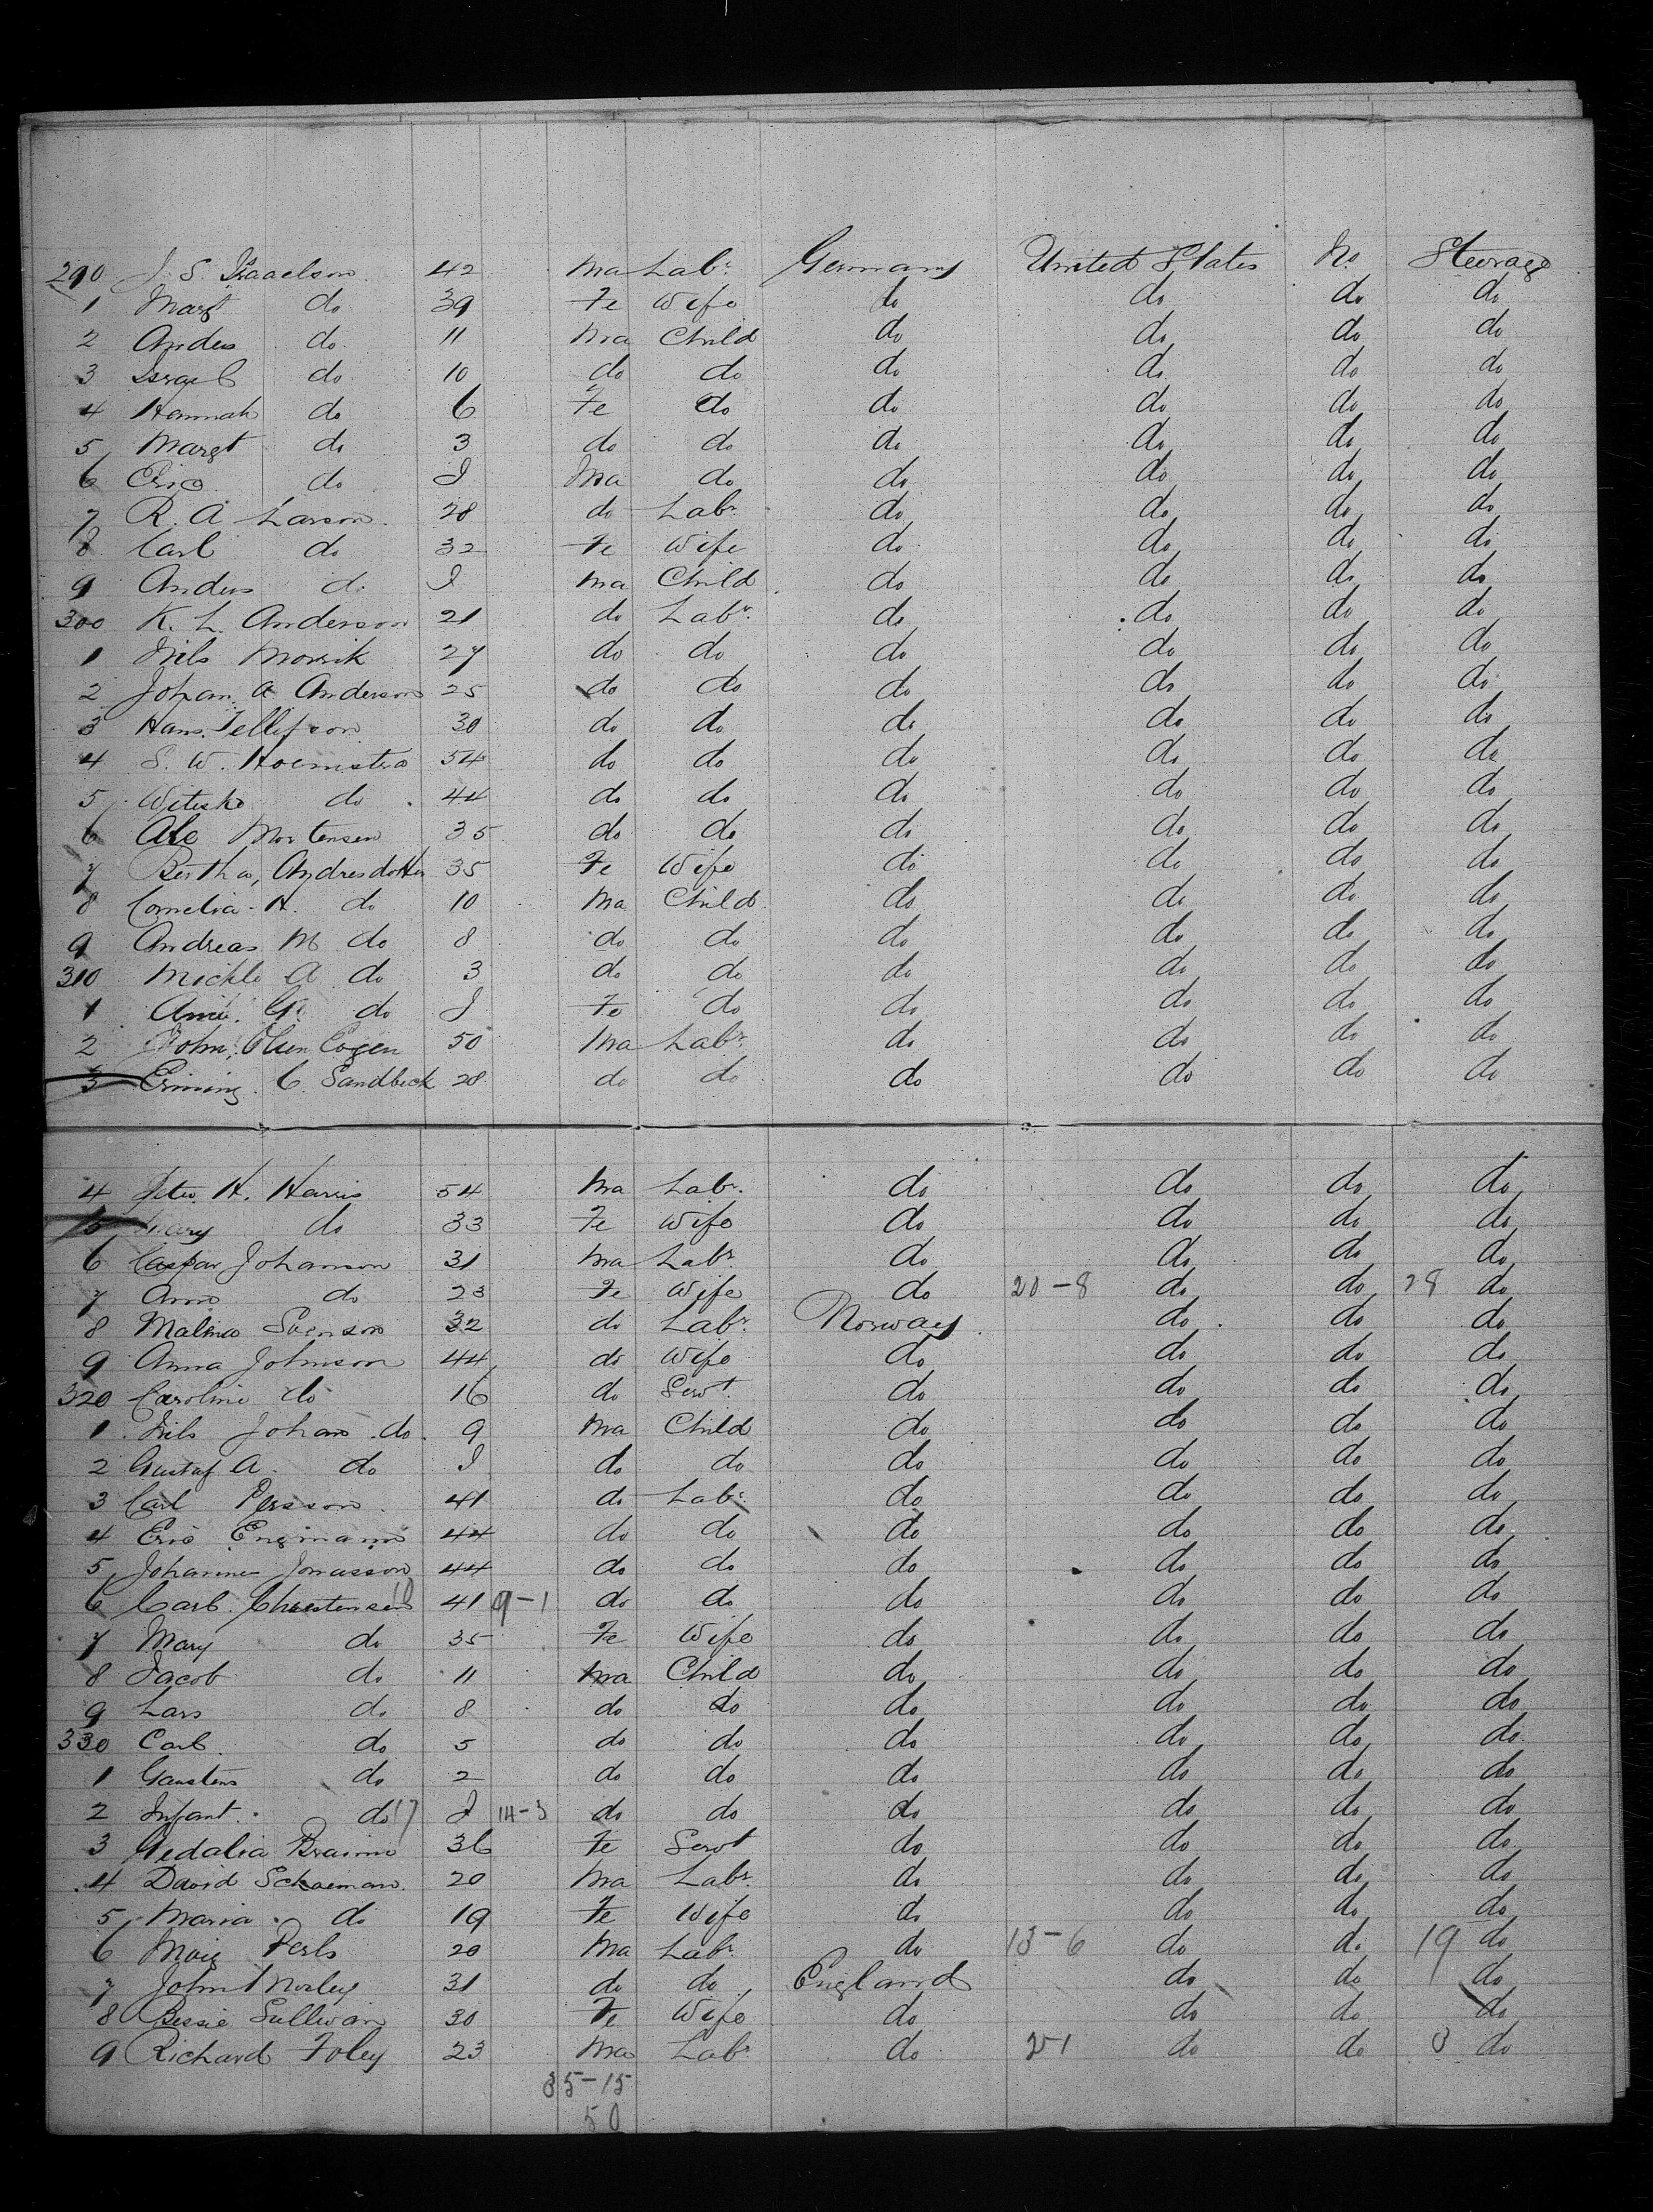 290 J. S. Isaaelson 42 Ma Labr. Germany United States No. Steerage
1 Margt do 39 Fe Wife do do do do
2 Anders do 11 Ma Child do do do do
3 Israel do 10 do do do do do do
4 Hannah do 6 Fe do do do do do
5 Margt do 3 do do do do do do
6 Eric do I Ma do do do do do
7 R. A Larson 28 do Labr. do do do do
8 Carl do 32 Fe Wife do do do do
9 Anders do I Ma Child do do do do
300 K. L. Anderson 21 do Labr. do do do do
1 Nils 27 do do do do do do
2 Johan A Anderson 25 do do do do do do
3 Hans Tellefson 30 do do do do do do
4 S. W. Hoemstra 54 do do do do do do
5 do 44 do do do do do do
6 Mortensen 35 do do do do do do
7 Bertha, Andresdotter 35 Fe Wife do do do do
8 Cornelia H. do 10 Ma Child do do do do
9 Andreas M do 8 do do do do do do
310 Michle A do 3 do do do do do do
1 do I Fe do do do do do
2 John, Olsen 50 Ma Labr. do do do do
3 C. Sandbeck 28 do do do do do do
4 H. Harris 54 Ma Labr. do do do do
5 Mary do 33 Fe Wife do do do do
6 Caspar Johanson 31 Ma Labr. do do do do
7 Anne do 23 Fe Wife do 20-8 do do 28 do
8 Malina Svenson 32 do Labr. Norway do do do
9 Anna Johnson 44 do Wife do do do do
320 Caroline do 16 do Servt. do do do do
1 Nils Johan do 9 Ma Child do do do do
2 Gustaf A. do I do do do do do do
3 Carl Persson 41 do Labr. do do do do
4 Eric Engmann 44 do do do do do do
5 Johannes Jonasson 44 do do do do do do
6 Carl Christensen 10 41 9-1 do do do do do do
7 Mary do 35 Fe Wife do do do do
8 Jacob do 11 Ma Child do do do do
9 Lars do 8 do do do do do do
330 Carl do 5 do do do do do do
1 do 2 do do do do do do
2 Infant do 17 I 14-3 do do do do do do
3 36 Fe Servt do do do do
4 David Schaeman 20 Ma Labr. do do do do
5 Maria do 19 Fe Wife do do do do
6 Perls 20 Ma Labr. do 13-6 do do 19 do
7 John Morley 31 do do England do do do
8 Bessie Sullivan 30 Fe Wife do do do do
9 Richard Foley 23 Ma Labr. do 2-1 do do do
35-15
50